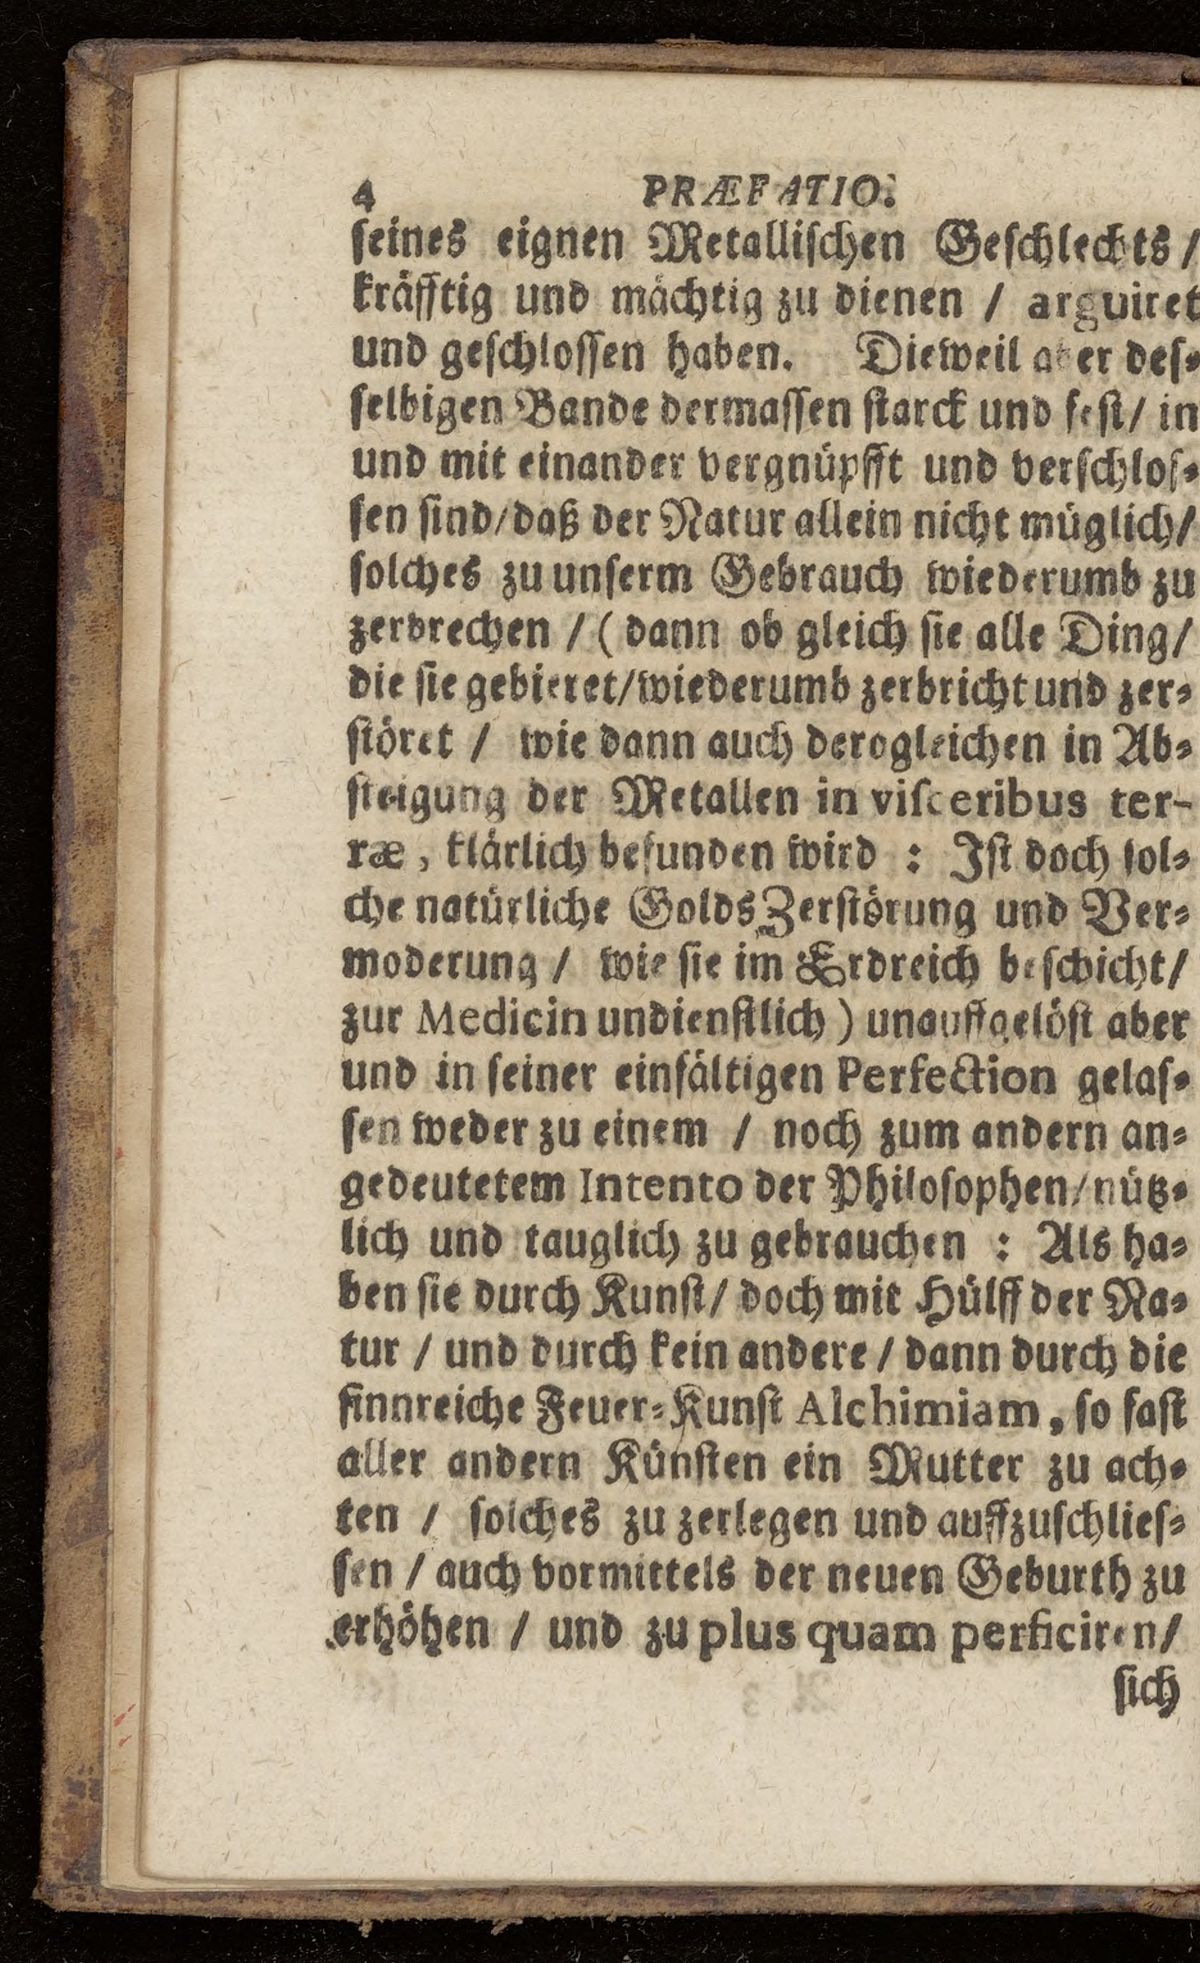 4 PRÆFATIO.
seines eignen Metallischen Geschlechts /
kräfftig und mächtig zu dienen / arguiret
und geschlossen haben. Dieweil aber des-
selbigen Bande dermassen starck und fest/ in
und mit einander vergnüpfft und verschlos-
sen sind/daß der Natur allein nicht müglich/
solches zu unserm Gebrauch wiederumb zu
zerbrechen / (dann ob gleich sie alle Ding/
die sie gebieret/wiederumb zerbricht und zer-
störet / wie dann auch derogleichen in Ab-
steigung der Metallen in visceribus ter-
ræ, klärlich befunden wird : Ist doch sol-
che natürliche Golds Zerstörung und Ver-
moderung / wie sie im Erdreich beschicht/
zur Medicin undienstlich) unauffgelöst aber
und in seiner einfältigen Perfection gelas-
sen weder zu einem / noch zum andern an-
gedeutetem Intento der Philosophen/nütz-
lich und tauglich zu gebrauchen : Als ha-
ben sie durch Kunst/ doch mit Hülff der Na-
tur / und durch kein andere / dann durch die
sinnreiche Feuer-Kunst Alchimiam, so fast
aller andern Künsten ein Mutter zu ach-
ten / solches zu zerlegen und auffzuschlies-
sen / auch vormittels der neuen Geburth zu
erhöhen / und zu plus quam perficiren/
sich